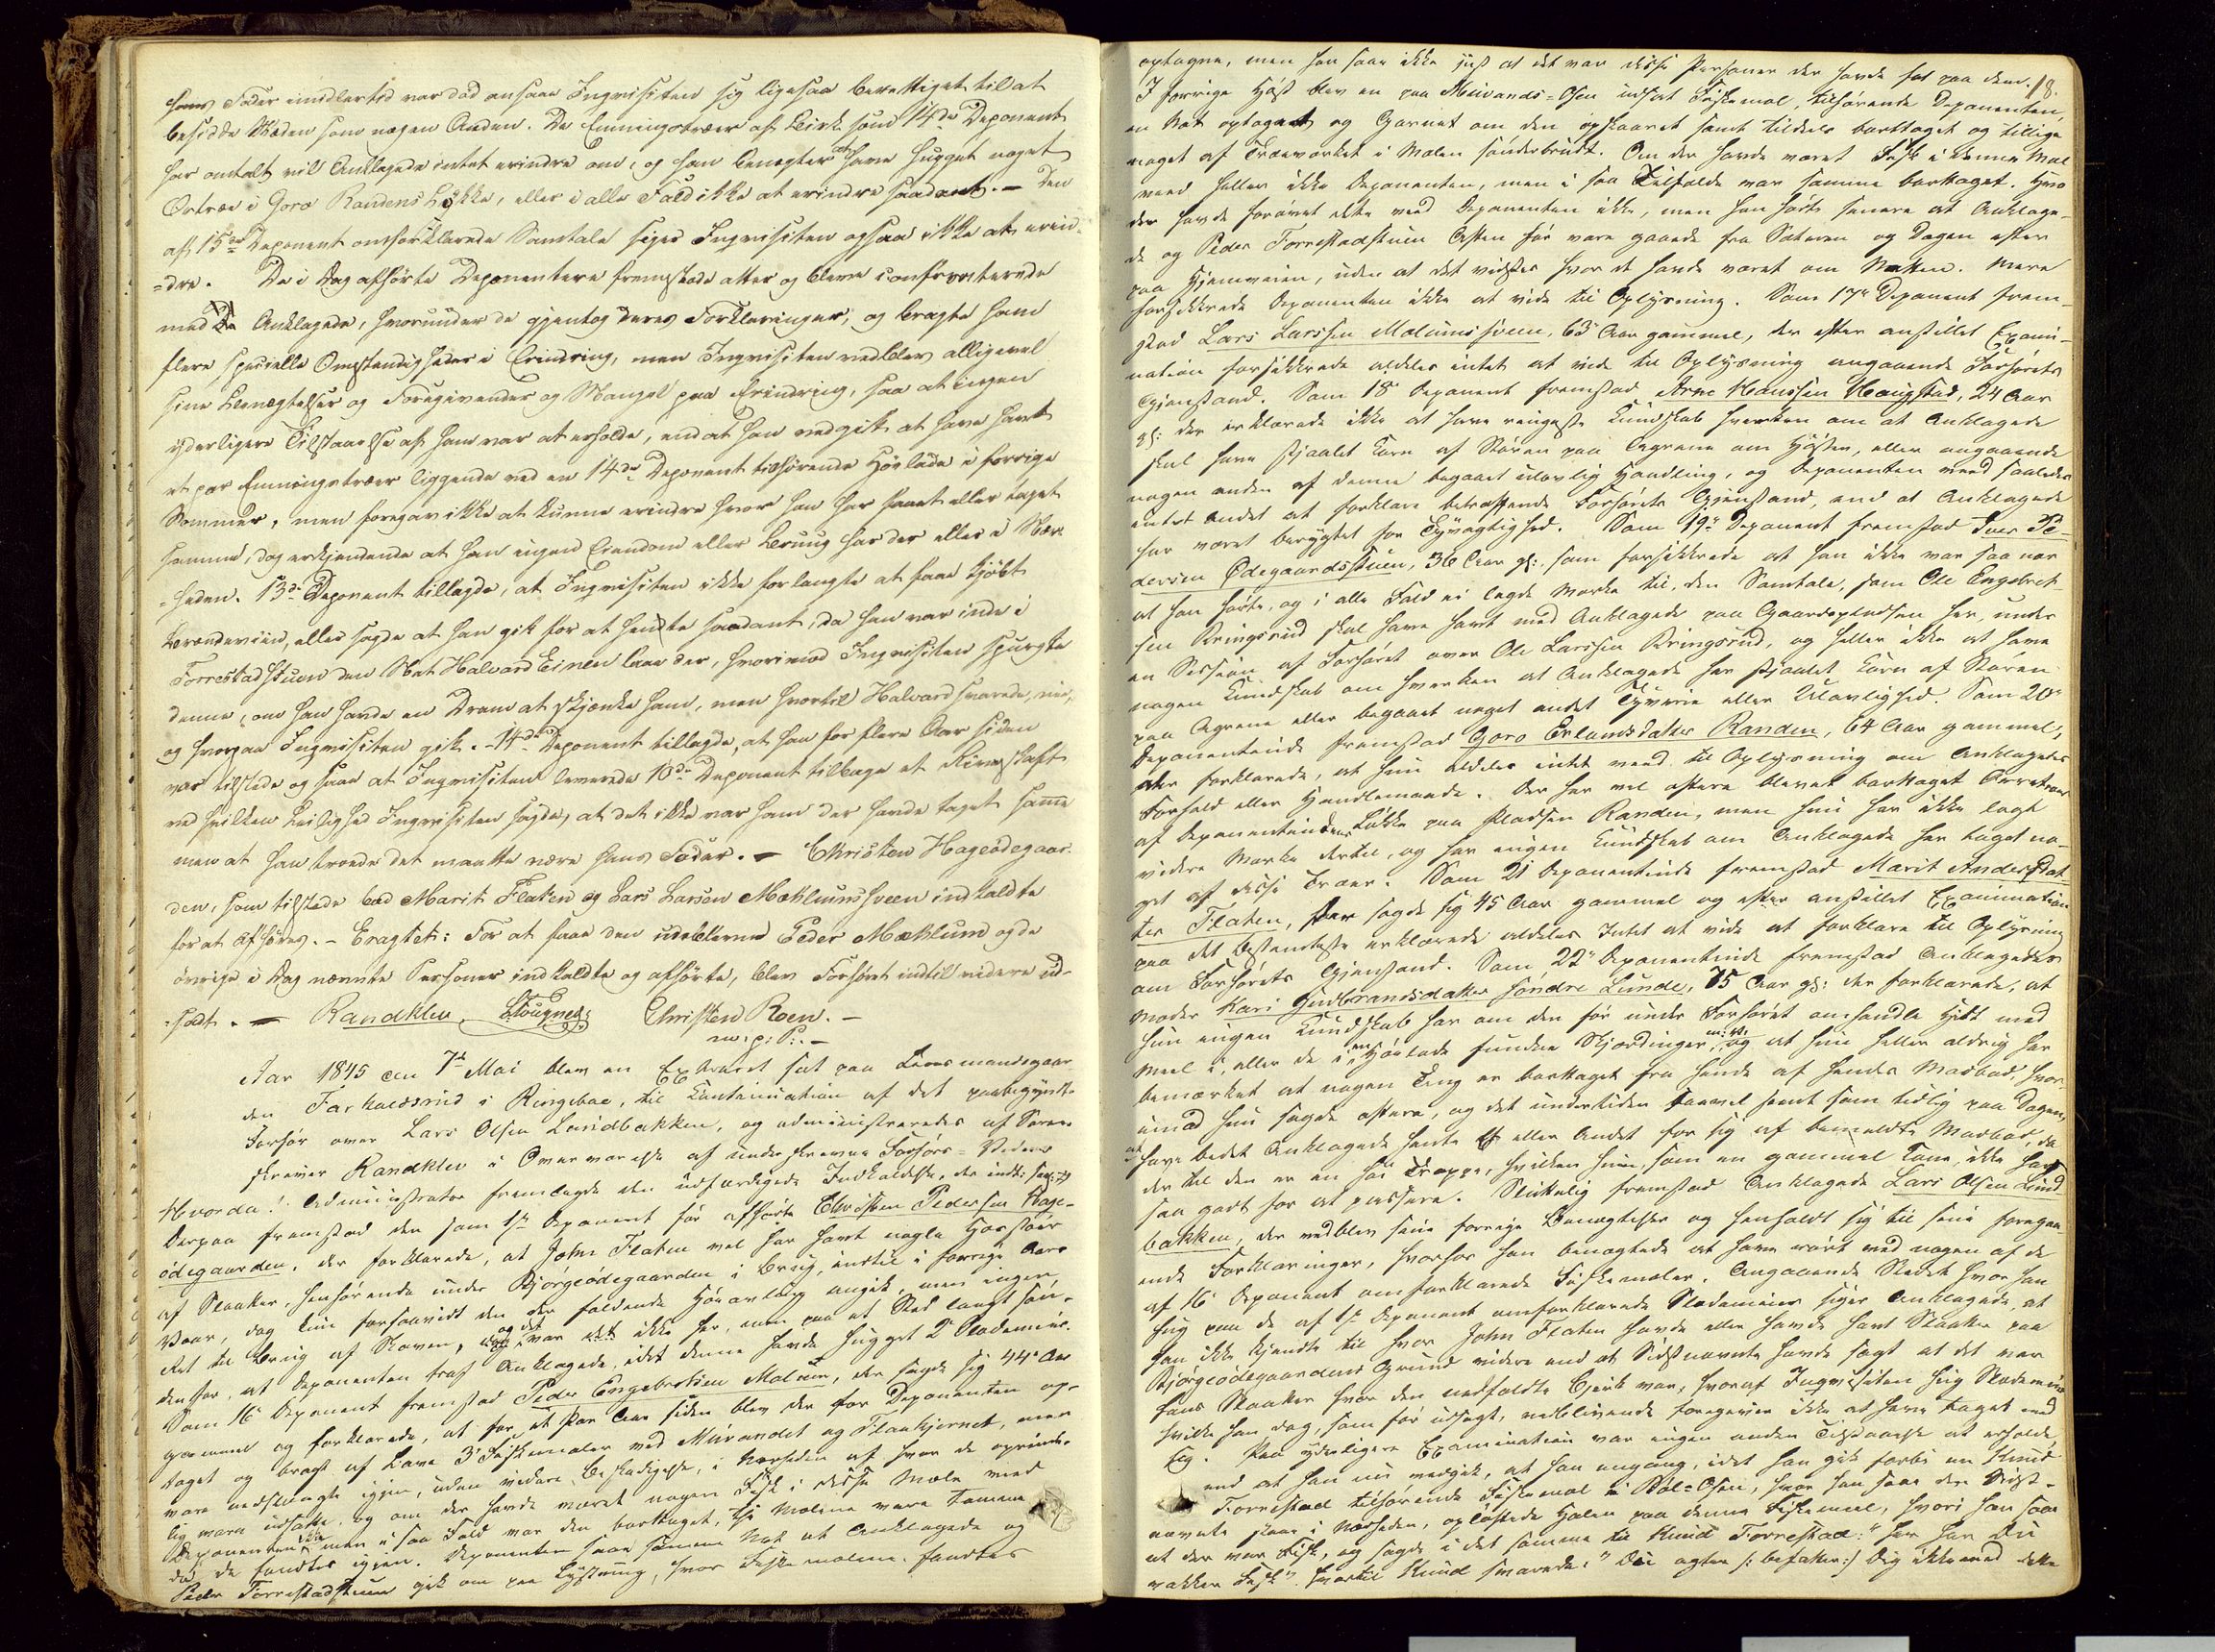 hans Fader imidlertid var død ansaae Inqvisiten sig ligesaa berettiget til at
besidde Stæden som nogen Anden. De Emningstræer af Birk som 14de Deponent
har omtalt vil Anklagede intet erindre om, og han benægter at have hugget noget
Ortræe i Goro Randens Løkke, eller i alle Fald ikke at erindre saadant. — Den
af 15de Deponent omforklarede Samtale siger Inqvisiten ogsaa ikke at erin-
=dre. De i Dag afhørte Deponentere fremstode atter og bleve confronterede
med Anklagede, hvorunder de gjentog deres Forklaringer, og bragte ham
flere specielle Omstændigheder i Erindring, men Inqvisiten vedblev alligevel
sine Benægtelser og Foregivender og Mangel paa Erindring, saa at ingen
yderligere Tilstaaelse af ham var at erholde, end at han vedgik at have havt
et par Emningstræer liggende ved en 14de Deponent tilhørende Høylade i forrige
Sommer, men foregav ikke at kunne erindre hvor han har faaet eller taget
samme, dog erkjendende at han ingen Eiendom eller Brug har der eller i Nær-
=heden. 13de Deponent tillagde, at Inqvisiten ikke forlangte at faae kjøbt
Brændeviin, eller sagde at han gik for at hendte saadant, da han var inde i
Torrestadstuen den Nat Halvard Einen laae der, hvorimod Inqvisiten spurgte
denne, om han havde en Dram at skjænke ham, men hvortil Halvard svarede, nei,
og hvorpaa Inqvisiten gik. — 14de Deponent tillagde, at han for flere Aar siden
var tilstede og saae at Inqvisiten leverede 10de Deponent tilbage et Riveskaft
ved hvilken Leilighed Inqvisiten sagde, at det ikke var ham der havde taget samme
men at han troede det maatte være hans Fader. — Christen Hageødegaar-
den, som tilstede bad Marit Flaten og Lars Larsen Mæhlumsveen indkaldte
for at afhøres. — Eragtet: For at faae den udeblevne Peder Mæhlum og de
øvrige i Dag nævnte Personer indkaldte og afhørte, blev Forhøret indtil videre ud-
=sadt. — Randklev, Christen Roen. —
m. p: P: —
Aar 1845 den 7de Mai blev en Extraret sat paa Lensmandsgaar-
den Farkaldsrud i Ringeboe, til Continuation af det paabegyndte
Forhør over Lars Olsen Lundbakken, og administreredes af Soren-
skriver Randklev i Overværelse af underskrevne Forhørs-Vidner
Hvorda! Administrator fremlagde den udfærdigede Indkaldelse, der indt: saal:
Derpaa fremstod den som 1ste Deponent før afhørte Christen Pedersen Hage-
ødegaarden, der forklarede, at John Flaten vel har havt nogle Høestaar
af Staaker, henhørende under Bjørgeødegaarden i Brug, indtil i forrige Aars
Vaar, dog kun forsaavidt den der faldende Høeavling angik, men ingen
Ret til Brug af Skoven, og det var ikke her, men paa et Sted langt søn-
denfor, at Deponenten traf Anklagede, idet denne havde hugget 2 Slædemeier.
Som 16 Deponent fremstod Peder Engebretsen Melum, der sagde sig 44 Aar
gammel og forklarede, at for et Par Aar siden blev der for Deponenten op-
taget og bragt af Lave 3 Fiskemaler ved Mürandet og Flaakjernet, men
vare nedslængte igjen, uden videre Beskadigelse, i Nærheden af hvor de oprinde-
lig vare udsatte, og om der havde været nogen Fisk i disse Mæler veed
Deponenten ikke men i saa Fald var den borttaget, thi Mælene vare tomme
da de fandtes igjen. Deponenten saae samme Nat at Anklagede og
Peder Torrestadstuen gik om paa Lystring, hvor Fiskemælene fandtes
optagne, men han saae ikke just at det var disse Personer der havde fat paa dem.
18.
I forrige Høst blev en paa Mürands-Osen udsat Fiskemæl, tilhørende Deponenten,
en Nat optaget og Garnet om den opskaaret samt tildeels borttaget og tillige
noget af Træeværket i Mælen sønderbrudt. Om der havde været Fisk i denne Mæl
veed heller ikke Deponenten, men i saa Tilfælde var samme borttaget. Hvo
der havde forøvet dette veed Deponenten ikke, men han hørte senere at Anklage-
de og Peder Torrestadstuen Aften før vare gaaede fra Sæteren og Dagen efter
paa Hjemveien, uden at det vidstes hvor de havde været om Natten. Mere
forsikkrede Deponenten ikke at vide til Oplysning. Som 17de Deponent frem-
stod Lars Larssen Melumsveen, 63 Aar gammel, der efter anstillet Exami-
nation forsikkrede aldeles intet at vide til Oplysning angaaende Forhørets
Gjenstand. Som 18 Deponent fremstod Arne Hanssen Haugstad, 24 Aar
gl: der erklærede ikke at have ringeste Kundskab hverken om at Anklagede
skal have stjaalet Korn af Støren paa Agrene om Høsten, eller angaaende
nogen anden af denne begaaet ulovlig Handling, og Deponenten veed saaledes
intet Andet at forklare betræffende Forhørets Gjenstand, end at Anklagede
har været berygtet for Tyvagtighed. Som 19de Deponent fremstod Iver Pe-
dersen Ødegaardsstuen, 36 Aar gl:, som forsikkrede at han ikke var saa nær
at han hørte, og i alle Fald ei lagde Mærke til, den Samtale, som Ole Engebret-
sen Bringsrud skal have havt med Anklagede paa Gaardspladsen her, under
en Session af Forhøret over Ole Larssen Bringsrud, og heller ikke at have
nogen Kundskab om hverken at Anklagede har stjaalet Korn af Støren
paa Agrene eller begaaet noget andet Tyverie eller Ulovlighed. Som 20de
Deponentinde fremstod Goro Erlandsdatter Randen, 64 Aar gammel,
der forklarede, at hun aldeles intet veed til Oplysning om Anklagedes
Forhold eller Handlemaade. Der har vel oftere blevet borttaget Orretræer
af Deponentindens Løkke paa Pladsen Randen, men hun har ikke lagt
videre Mærke dertil, og har ingen Kundskab om Anklagede har taget no-
get af disse Træer. Som 21 Deponentinde fremstod Marit Andersdat-
ter Flaten, der sagde sig 45 Aar gammel og efter anstillet Examination
paa det bestemteste erklærede aldeles Intet at vide at forklare til Oplysning
om Forhørets Gjenstand. Som 22de Deponentinde fremstod Anklagedes
Moder Kari Gudbrandsdatter søndre Lunde, 75 Aar gl: der forklarede, at
hun ingen Kundskab har om den før under Forhøret omhandlede Hit med
Meel i, eller de i en Høelade fundne Skjærdinger m: v: og at hun heller aldrig har
bemærket at nogen Ting er borttaget fra hende af hendes Madbod, hvor-
imod hun sagde oftere, og det undertiden saavel seent som tidlig paa Dagen,
at have bedet Anklagede hente Et eller Andet for sig af bemeldte Madbod, da
der til den er en høi Trappe, hvilken hun, som en gammel Kone, ikke har
saa godt for at passere. Sluttelig fremstod Anklagede Lars Olsen Lund-
bakken, der vedblev sine forrige Benægtelser og henholdt sig til sine foregaa-
ende Forklaringer, hvorhos han benægtede at have rørt ved nogen af de
af 16 Deponent omforklarede Fiskemæler. Angaaende Stedet hvor han
hug paa de af 1ste Deponent omforklarede Slædemeier siger Anklagede, at
han ikke kjendte til hvor John Flaten havde eller havde havt Staaker paa
Bjørgeødegaardens Grund videre end at Sidstnævnte havde sagt at det var
hans Staaker hvor den nedfældte Bjerk var, hvoraf Inqvisiten hug Slædemeier
hvilke han dog, som før udsagt, vedblivende foregiver ikke at have taget med
sig. Paa yderligere Examination var ingen anden Tilstaaelse at erholde,
end at han nu vedgik, at han engang, idet han gik forbi en Knud
Torrestad tilhørende Fiskemæl i Bøl-Osen, hvor han saae den Sidst-
nævnte staae i Nærheden, opløftede Halen paa denne Fiskemæl, hvori han saae
at der var Fisk, og sagde i det samme til Knud Torrestad: "her har Du
vakker Fisk". Hvortil Knud svarede: "Du agter /: befatter :/ Dig ikke med dette